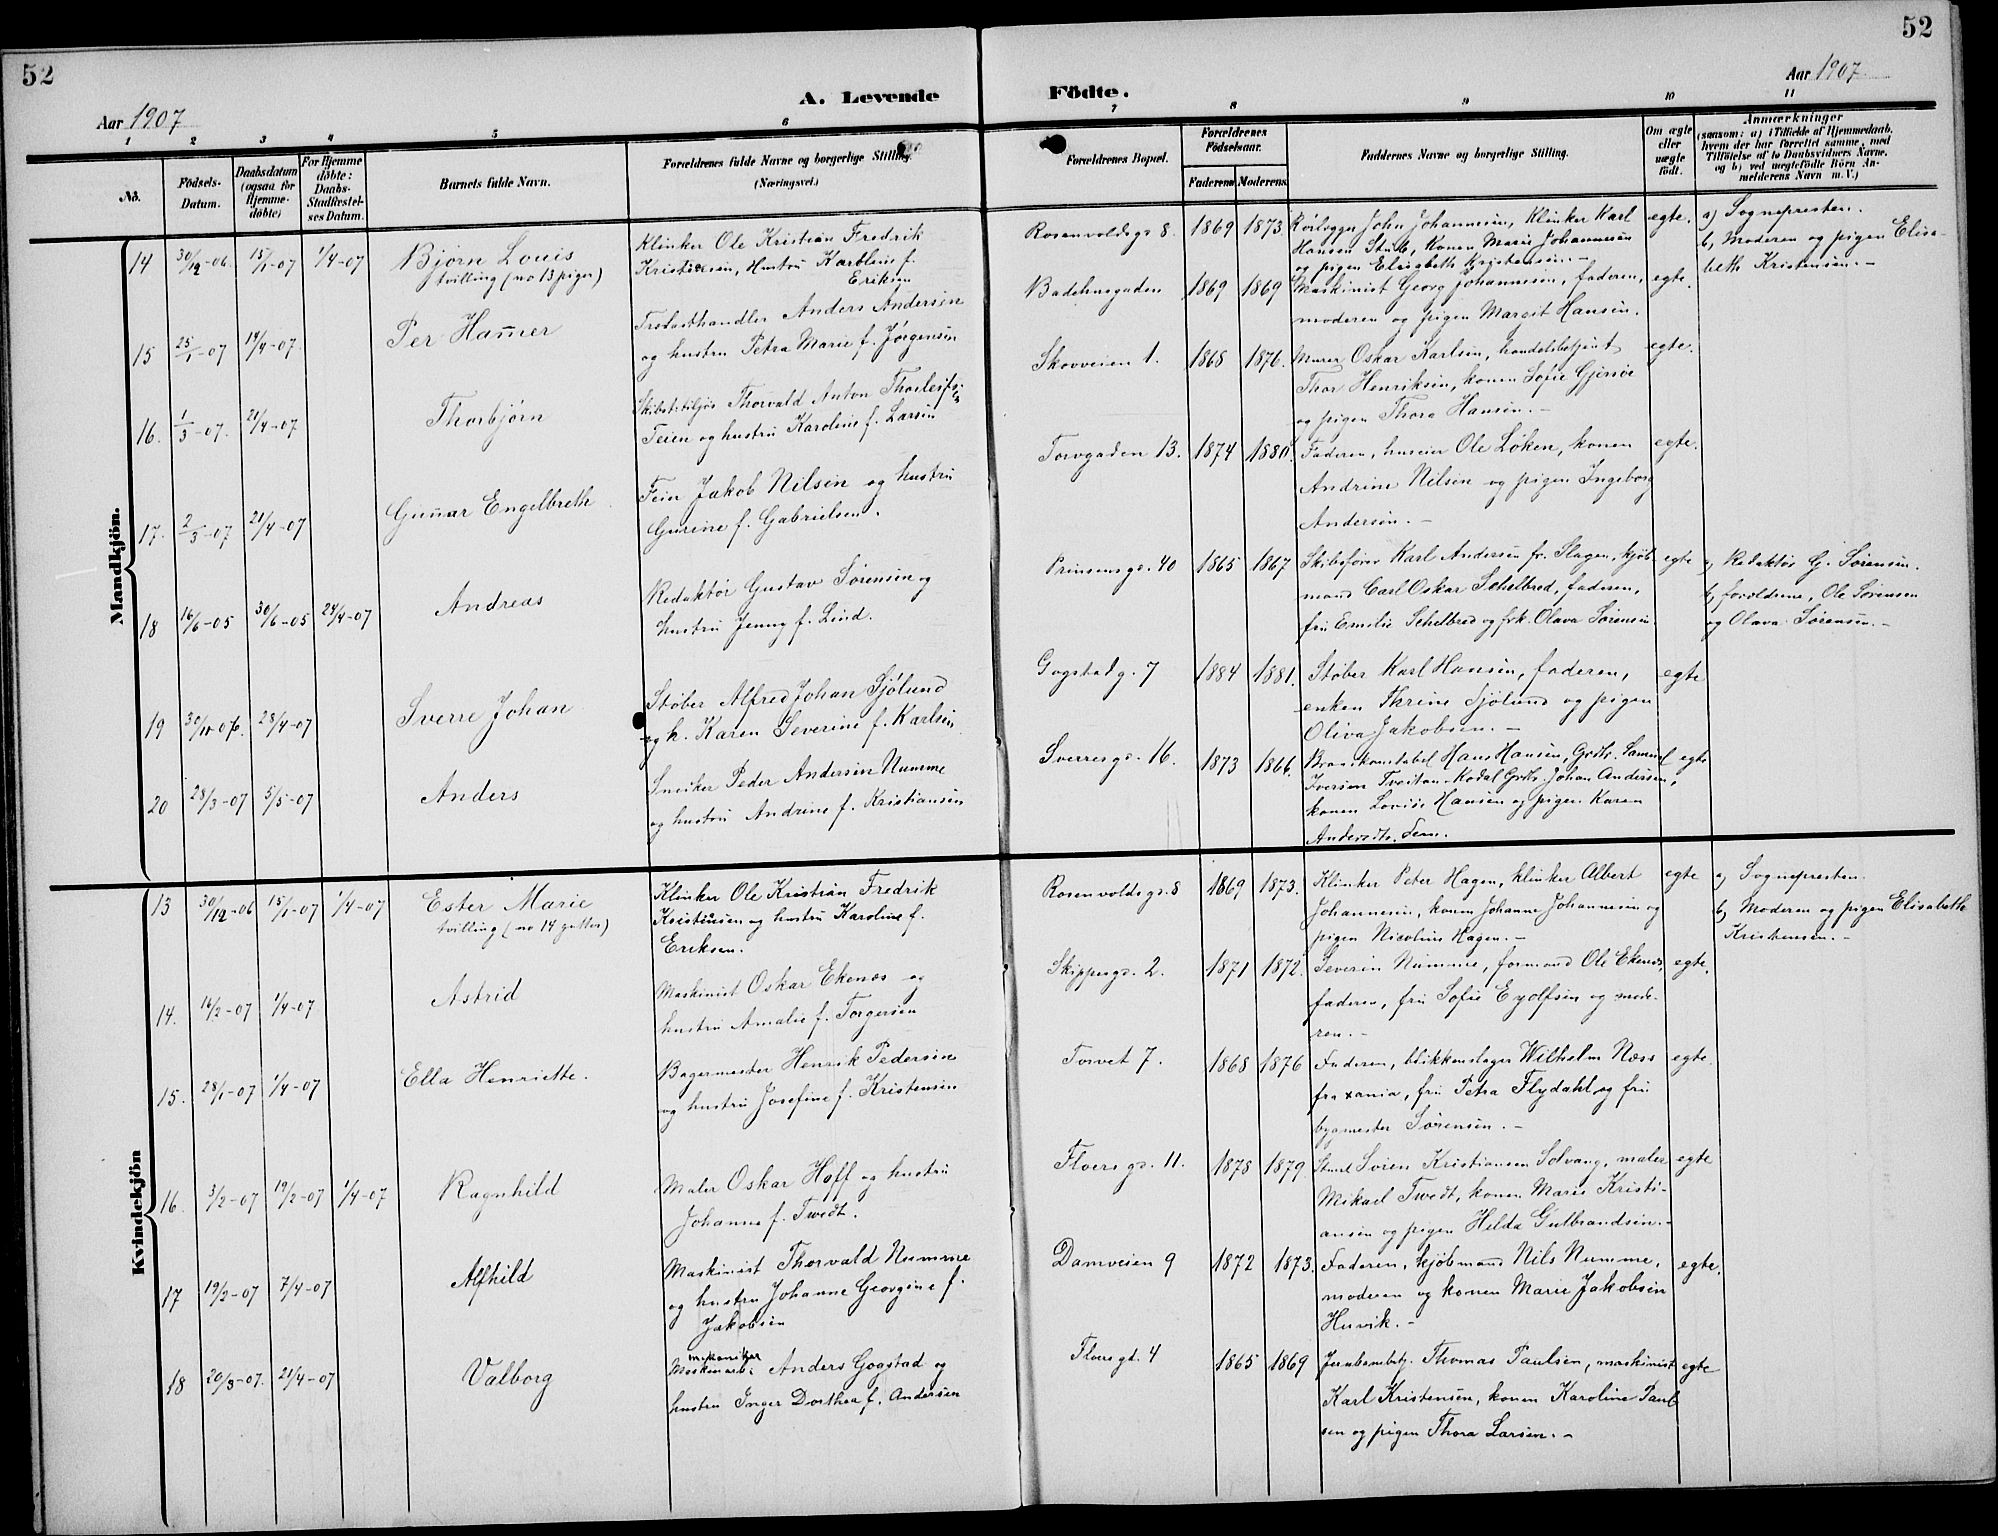 52
52
Aar 1907
A. Levende
Födte.
Aar 1907
1 2 3 4 5 6
7 8 9 10 11
No.
Födsels-Datum.
Daabsdatum (ogsaa for Hjemme-döbte)
For Hjemme döbte: Daabs-Stadfæstel-ses Datum.
Barnets fulde Navn.
Forældrenes fulde Navne og borgerlige Stilling.
(Næringsvei.)
Forældrenes Bopæl.
Forældrenes Födselsaar.
Faderens Moderens.
Faddernes Navne og borgerlige Stilling.
Om ægte eller uægte født.
Anmærkninger
(saasom: a) i Tilfælde af Hjemmedaab, hvem der har forrettet samme, med Tilføielse af to Daabsvidners Navne, og b) ved uægtefødte Börn An-melderens Navn m. V.)
Mandkjön.
14 30/12-06. 15/1-07 1/4-07 Bjørn Louis
tvilling (no 13 piger)
Klinker Ole Kristian Fredrik
Kristiansen, Hustru Karoline f.
Eriksen
Rosenvoldsgs 8. 1869 1873 Rørlægger John Johannesen, Klinker Karl
Hansen Stub, konen Marie Johannesen
og pigen Elisabeth Kristensen. -
egte.
a) Sognepresten.
b) Moderen og pigen Elisa-
beth Kristensen. -
15 25/1-07 14/4-07. Per Hamer
Trælasthandler Anders Andersen
og hustru Petra Marie f. Jørgensen
Badehusgaden 1869 1869 Maskinist Georg Johannesen, faderen,
moderen og pigen Margit Hansen.
egte.
16. 1/3-07. 21/4-07 Thorbjørn
Skibstiljør Thorvald Anton Thorleifs-
Teien og hustru Karoline f. Larsen
Skovveien 1. 1868 1876. Murer Oskar Karlsen, handelsbetjent
Thor Henriksen, konen Sofie Gjersøe
og pigen Thora Hansen. -
egte.
17. 2/3-07 21/4-07 Gunnar Engelbreth
Feier Jakob Nilsen og hustru
Gurine f. Gabrielsen.
Torvgaden 13. 1874 1880. Faderen, huseier Ole Løken, konen
Andrine Nilsen og pigen Ingeborg
Andersen. -
egte.
18 16/6-05 30/6-05 24/4-07 Andreas
Redaktør Gustav Sørensen og
hustru Jenny f. Lind.
Prinsensgs. 40 1865 1867 Skibsfører Karl Andersen fr. Slagen, kjøb-
mand Carl Oskar Schelbred, faderen,
fru Emilie Schelbred og frk. Olava Sørensen.
egte
a) Redaktør G. Sørensen.
b) forældrene, Ole Sørensen
og Olava Sørensen. -
19 30/10-06. 28/4-07 Sverre Johan
Støber Alfred Johan Sjølund
og h. Karen Severine f. Karlsen
Gogstadg. 7 1884 1881. Støber Karl Hansen, faderen,
enken Thrine Sjølund og pigen
Oliva Jakobsen. -
egte
20 28/3-07 5/5-07 Anders
Snedker Peder Andersen Numme
og hustru Andrine f. Kristiansen
Sverresgs. 16. 1873 1866. Brandkonstabel Hans Hansen, Grdbr. Samuel
Iversen Tveitan-Kodal Grdbr. Johan Andersen,
konen Lovise Hansen og pigen Karen
Andersdtr. Fevn.
egte
Kvindekjön
13 30/12-06 15/1-07 1/4-07 Ester Marie
tvilling (no 14 gutter)
Klinker Ole Kristian Fredrik
Kristiansen og hustru Karoline f.
Eriksen.
Rosenvoldsgs. 8 1869 1873. Klinker Peter Hagen, klinker Albert
Johannesen, konen Johanne Johannesen og
pigen Nicoline Hagen. -
egte
a) Sognepresten.
b) Moderen og pigen Elisabeth
Kristensen. -
14. 14/2-07 1/4-07 Astrid
Maskinist Oskar Ekenæs og
hustru Amalie f. Torgersen
Skippergs. 2. 1871 1872. Severin Numme, formand Ole Ekenæs,
faderen, fru Sofie Eyolfsen og mode-
ren. -
egte.
15. 28/1-07 1/4-07 Ella Henriette.
Bagermester Henrik Pedersen
og hustru Josefine f. Kristensen
Torvet 7. 1868 1876 Faderen, blikkenslager Wilhelm Næss
fra xania, fru Petra Flydahl og fru
bygmester Sørensen. -
egte.
16. 3/2-07 19/2-07 1/4-07 Ragnhild
Maler Oskar Hoff og hustru
Johanne f. Twedt.
Floersgs. 11. 1878 1879. Sören Kristiansen Solvang, maler
Mikael Twedt, konen Marie Kristi-
ansen og pigen Helda Gulbrandsen. -
egte
17 19/2-07 7/4-07 Alfhild
Maskinist Thorvald Numme
og hustru Johanne Georgine f.
Jakobsen
Damveien 9 1872 1873. Faderen, kjøbmand Nils Numme,
moderen og konen Marie Jakobsen
Huvik. -
egte.
18 20/3-07. 21/4-07 Valborg
mekaniker
Maskinarb. Anders Gogstad og
hustru Inger Dorthea f. Andersen
Floersgt. 4 1865 1869 Jernbanebtj. Thomas Paulsen, maskinist
Karl Kristensen, konen Karoline Paul-
sen og pigen Thora Larsen. -
egte